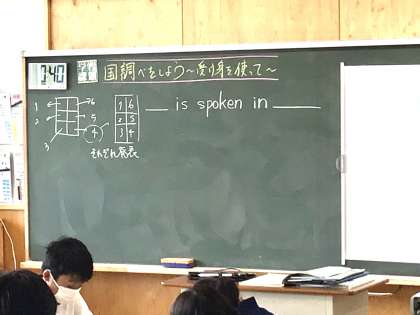 3:40
国調べをしよう～受け身を使って～
__ is spoken in ____
1 6
2 5
3 4
1 6
2 5
3 4
それぞれ発表